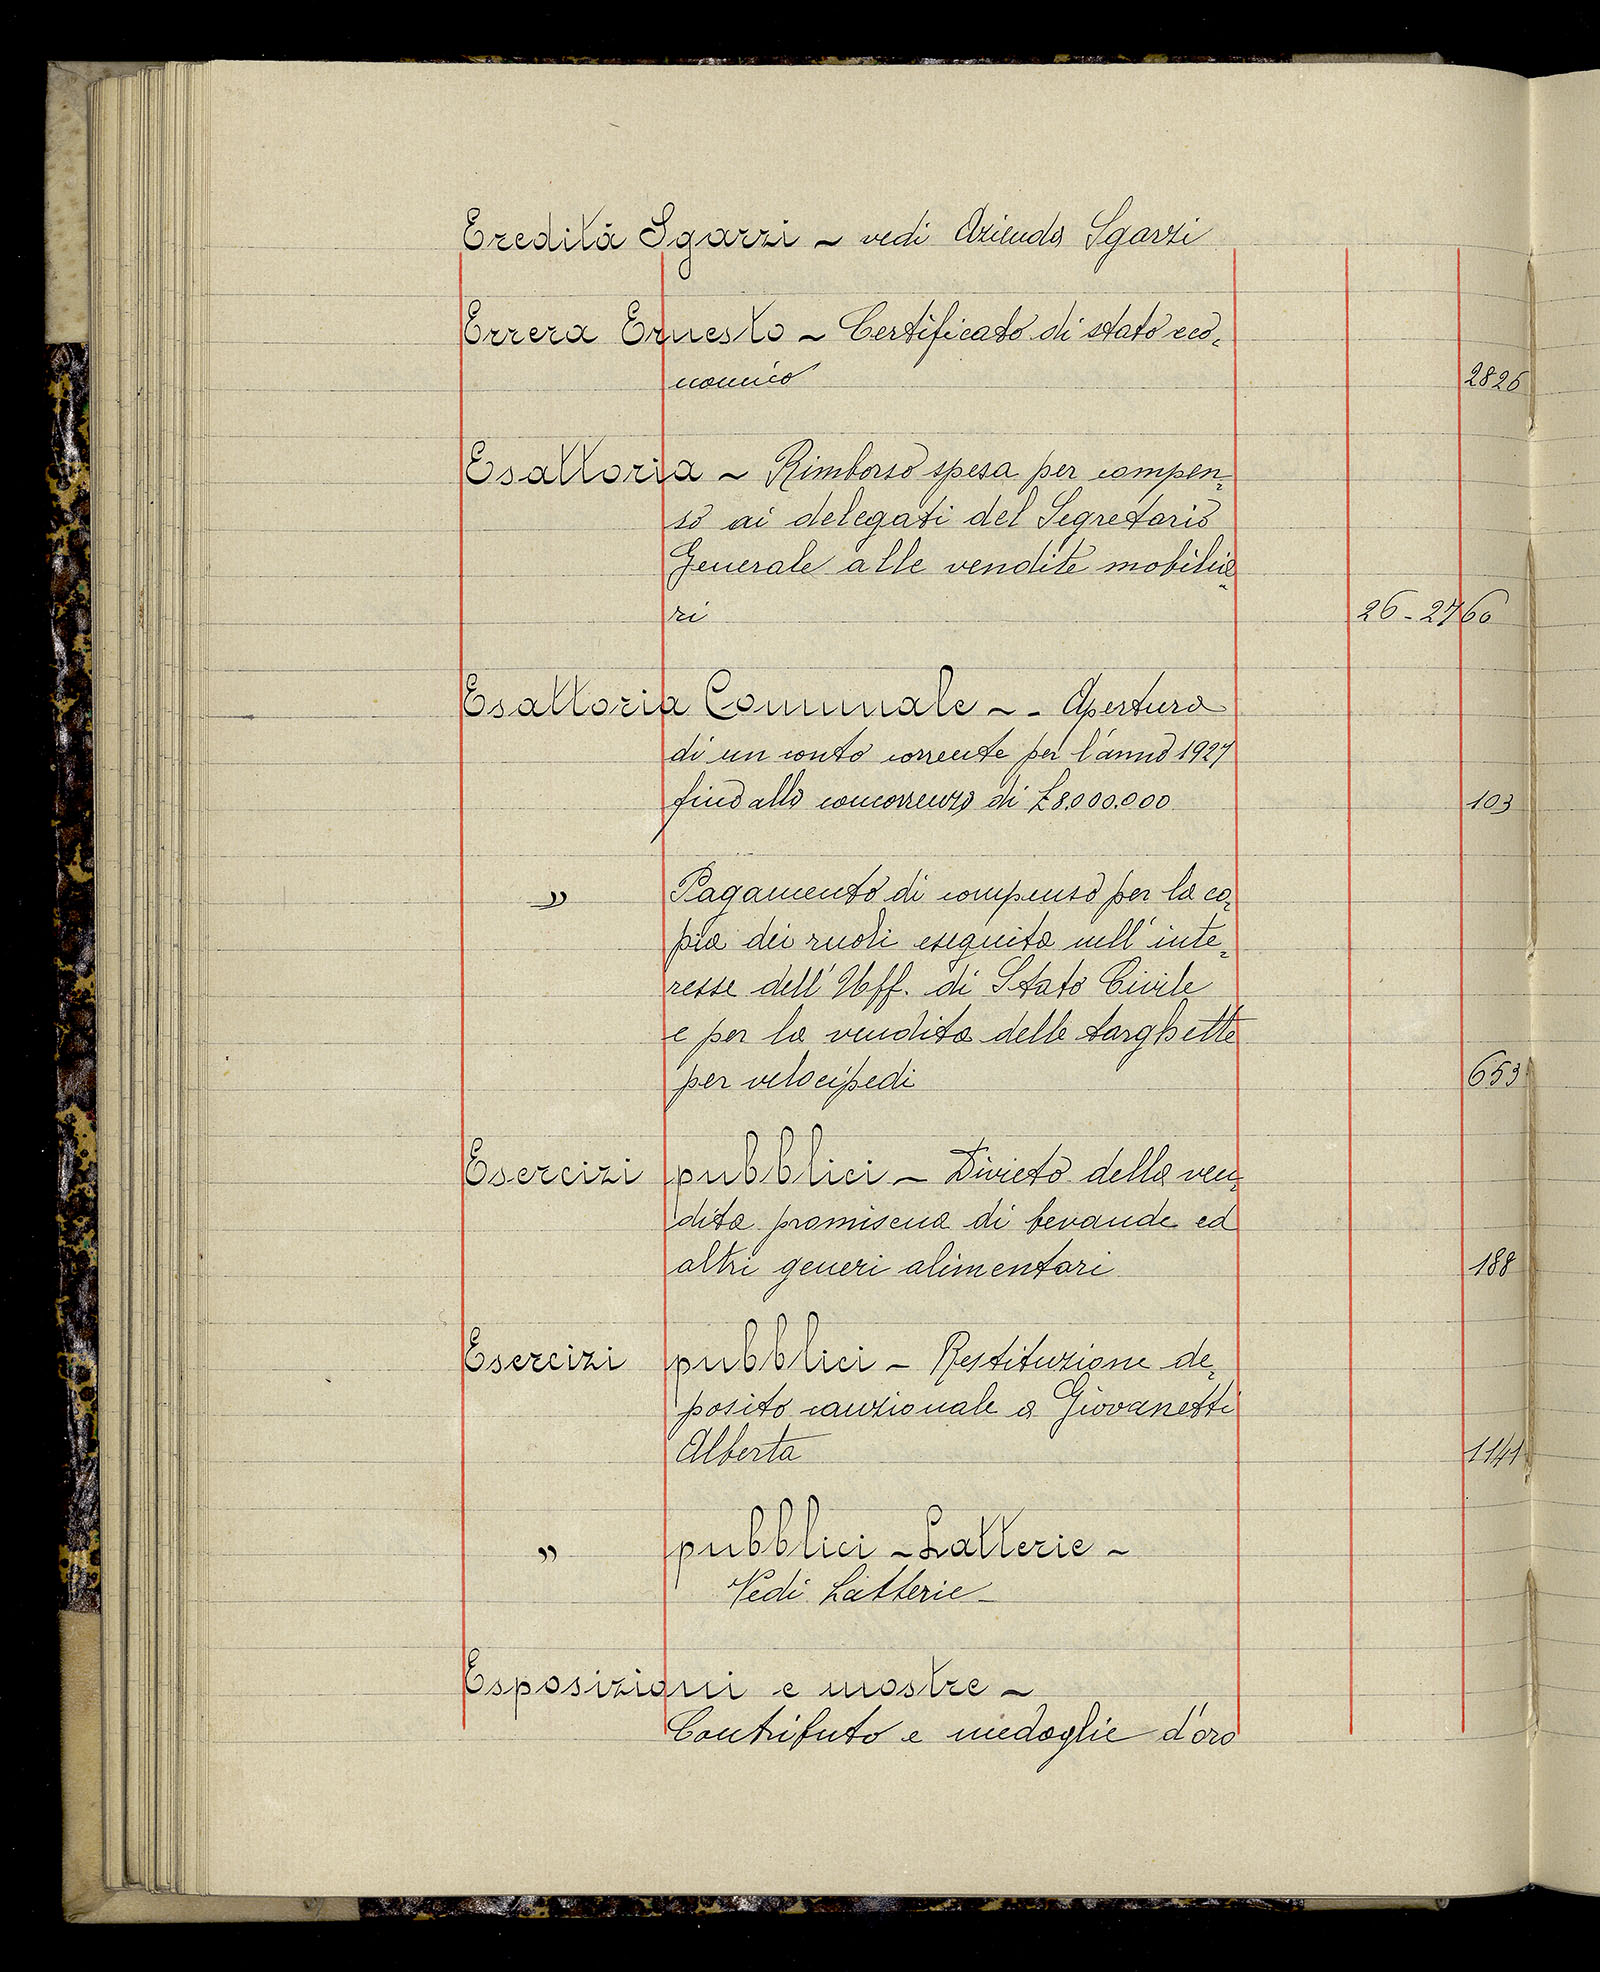 Eredità Sgarzi ~ vedi Azienda Sgarzi
Errera Ernesto ~ Certificato di stato eco-
nomico 2826
Esattoria ~ Rimborso spesa per compen-
so ai delegati del Segretario
Generale alle vendite mobilia-
ri 26-2760
Esattoria Comunale ~ - Apertura
di un conto corrente per l'anno 1927
fino alla concorrenza di £8.000.000 103
" Pagamento di compenso per la co-
pia dei ruoli eseguita nell'inte-
resse dell'Uff. di Stato Civile
e per la vendita delle targhette
per velocipedi 653
Esercizi pubblici ~ Divieto della ven-
dita promiscua di bevande ed
altri generi alimentari 188
Esercizi pubblici ~ Restituzione de-
posito cauzionale a Giovanetti
Alberta 1141
" pubblici ~ Latterie ~
Vedi Latterie -
Esposizioni e mostre ~
Contributo e medaglie d'oro